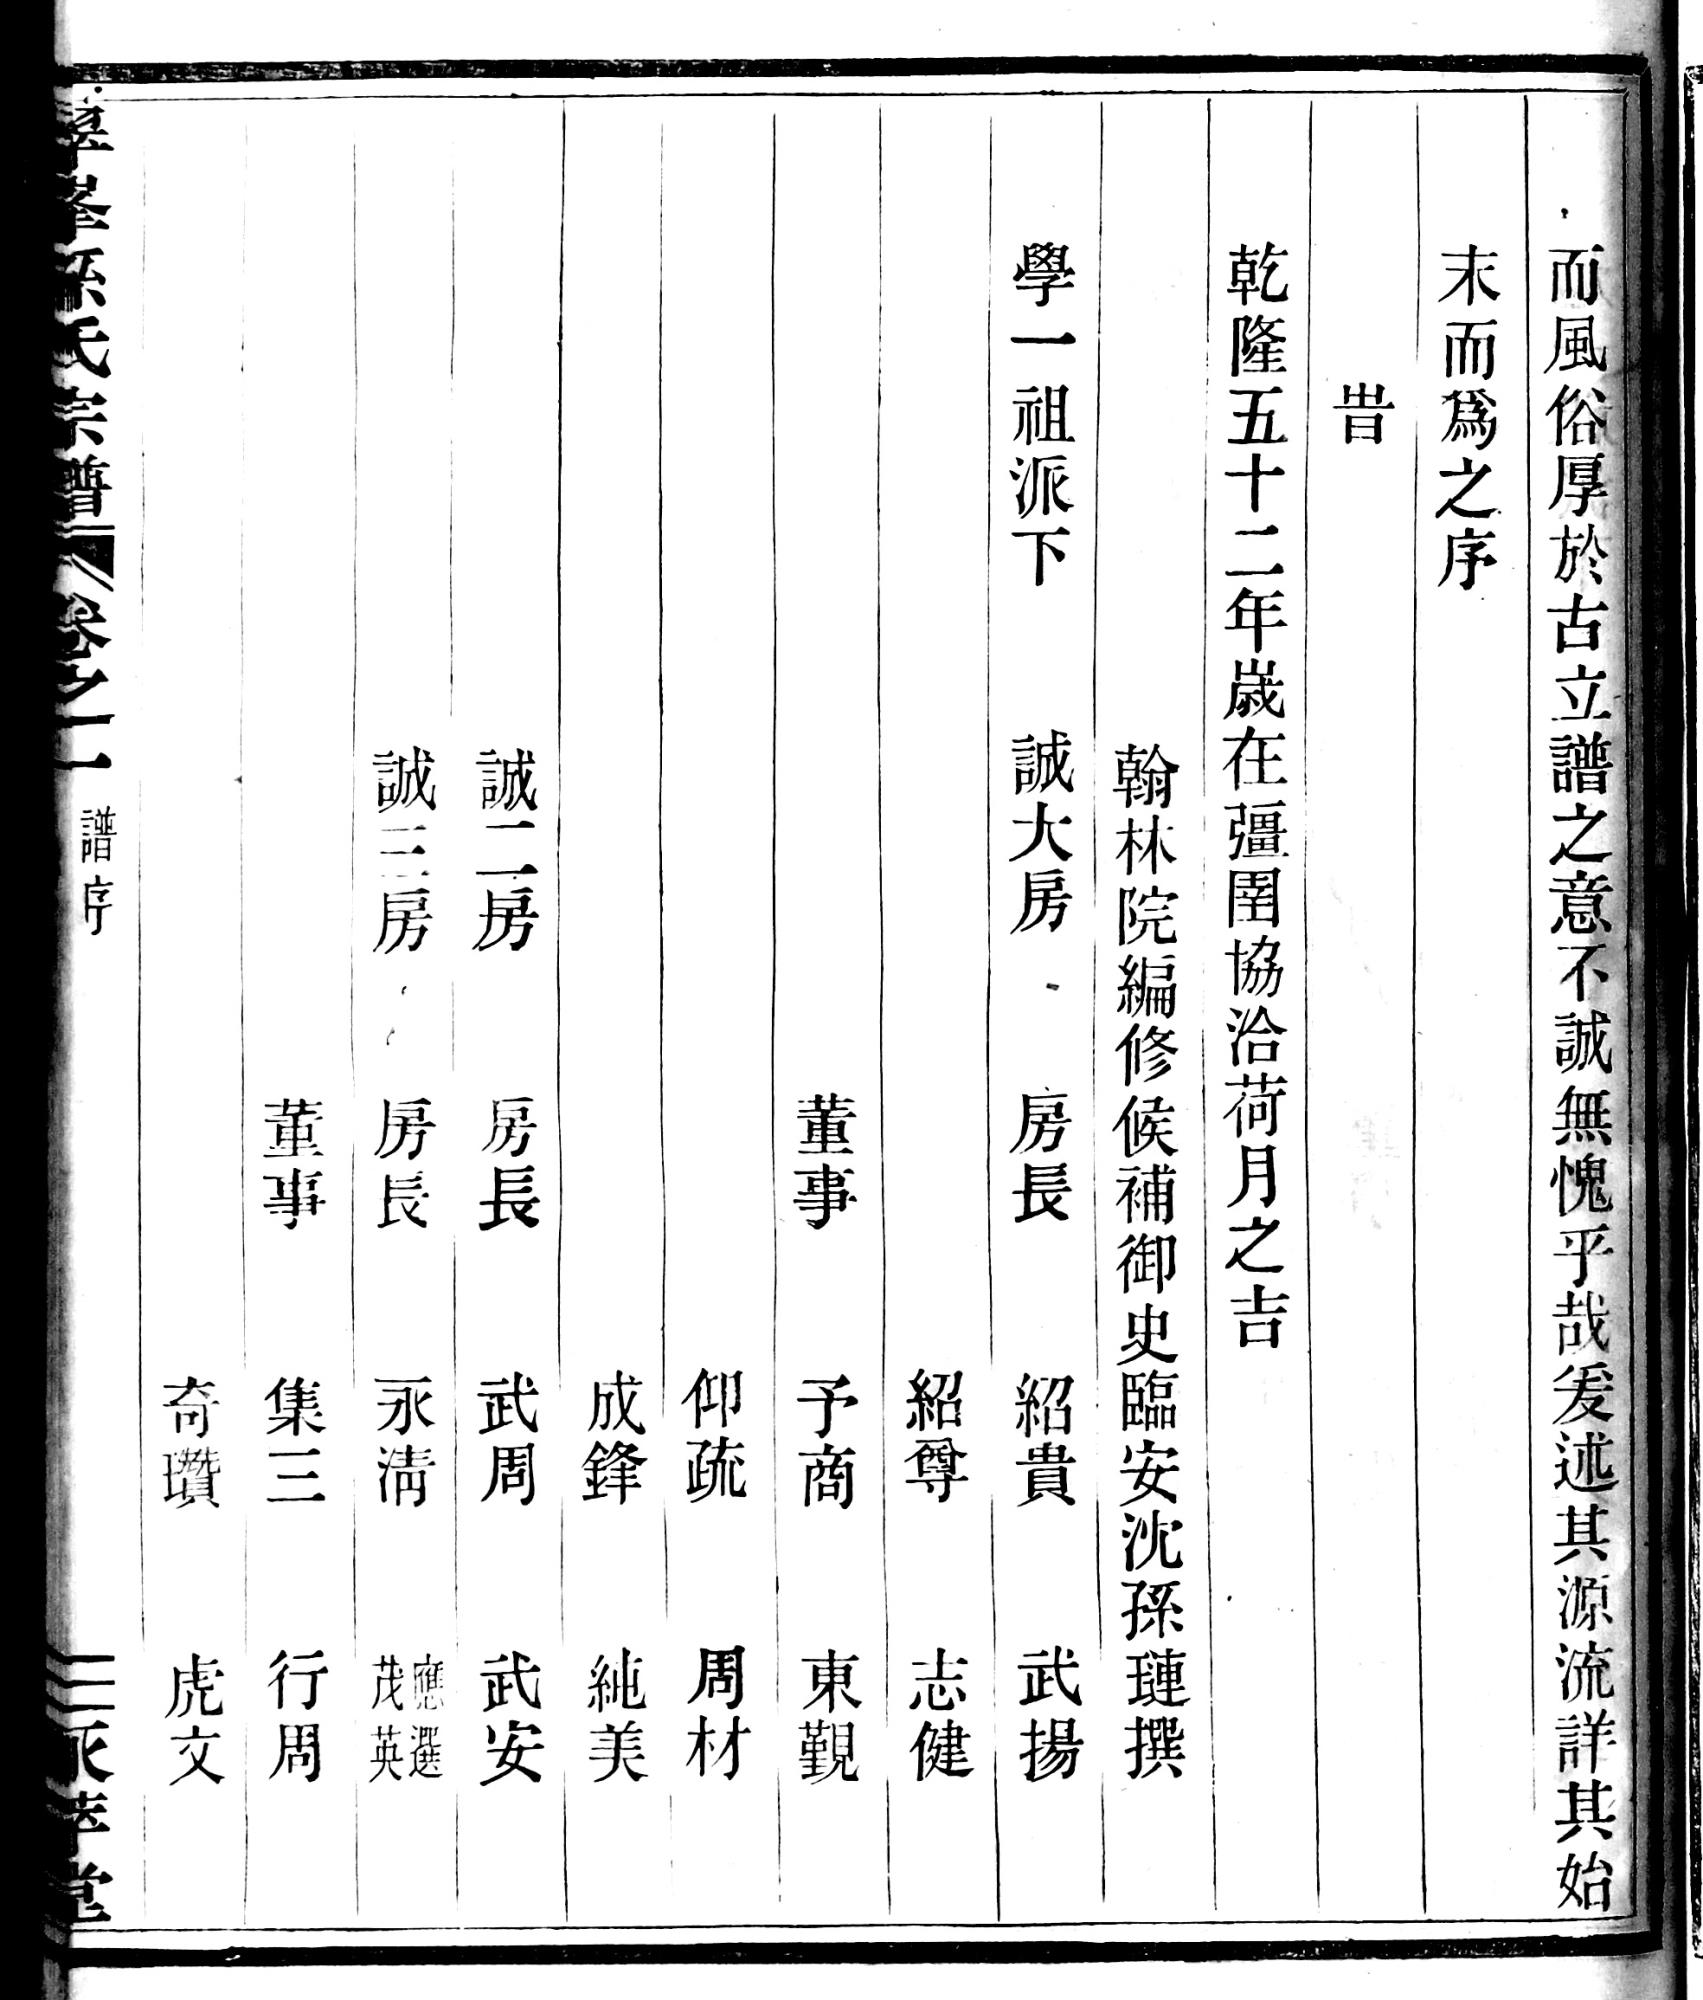 而風俗厚於古立譜之意不誠無愧乎哉爰述其源流詳其始
末而爲之序
旹
乾隆五十二年歲在彊圉協洽荷月之吉
翰林院編修候補御史臨安沈孫璉撰
學一祖派下 誠大房 房長 紹貴 武揚
紹尊 志健
董事 予商 東觀
仰疏 周材
成鋒 純美
誠二房 房長 武周 武安
誠三房 房長 永淸 應選 茂英
董事 集三 行周
奇瓚 虎文
峯孫氏宗譜 卷之一 譜序 萃堂